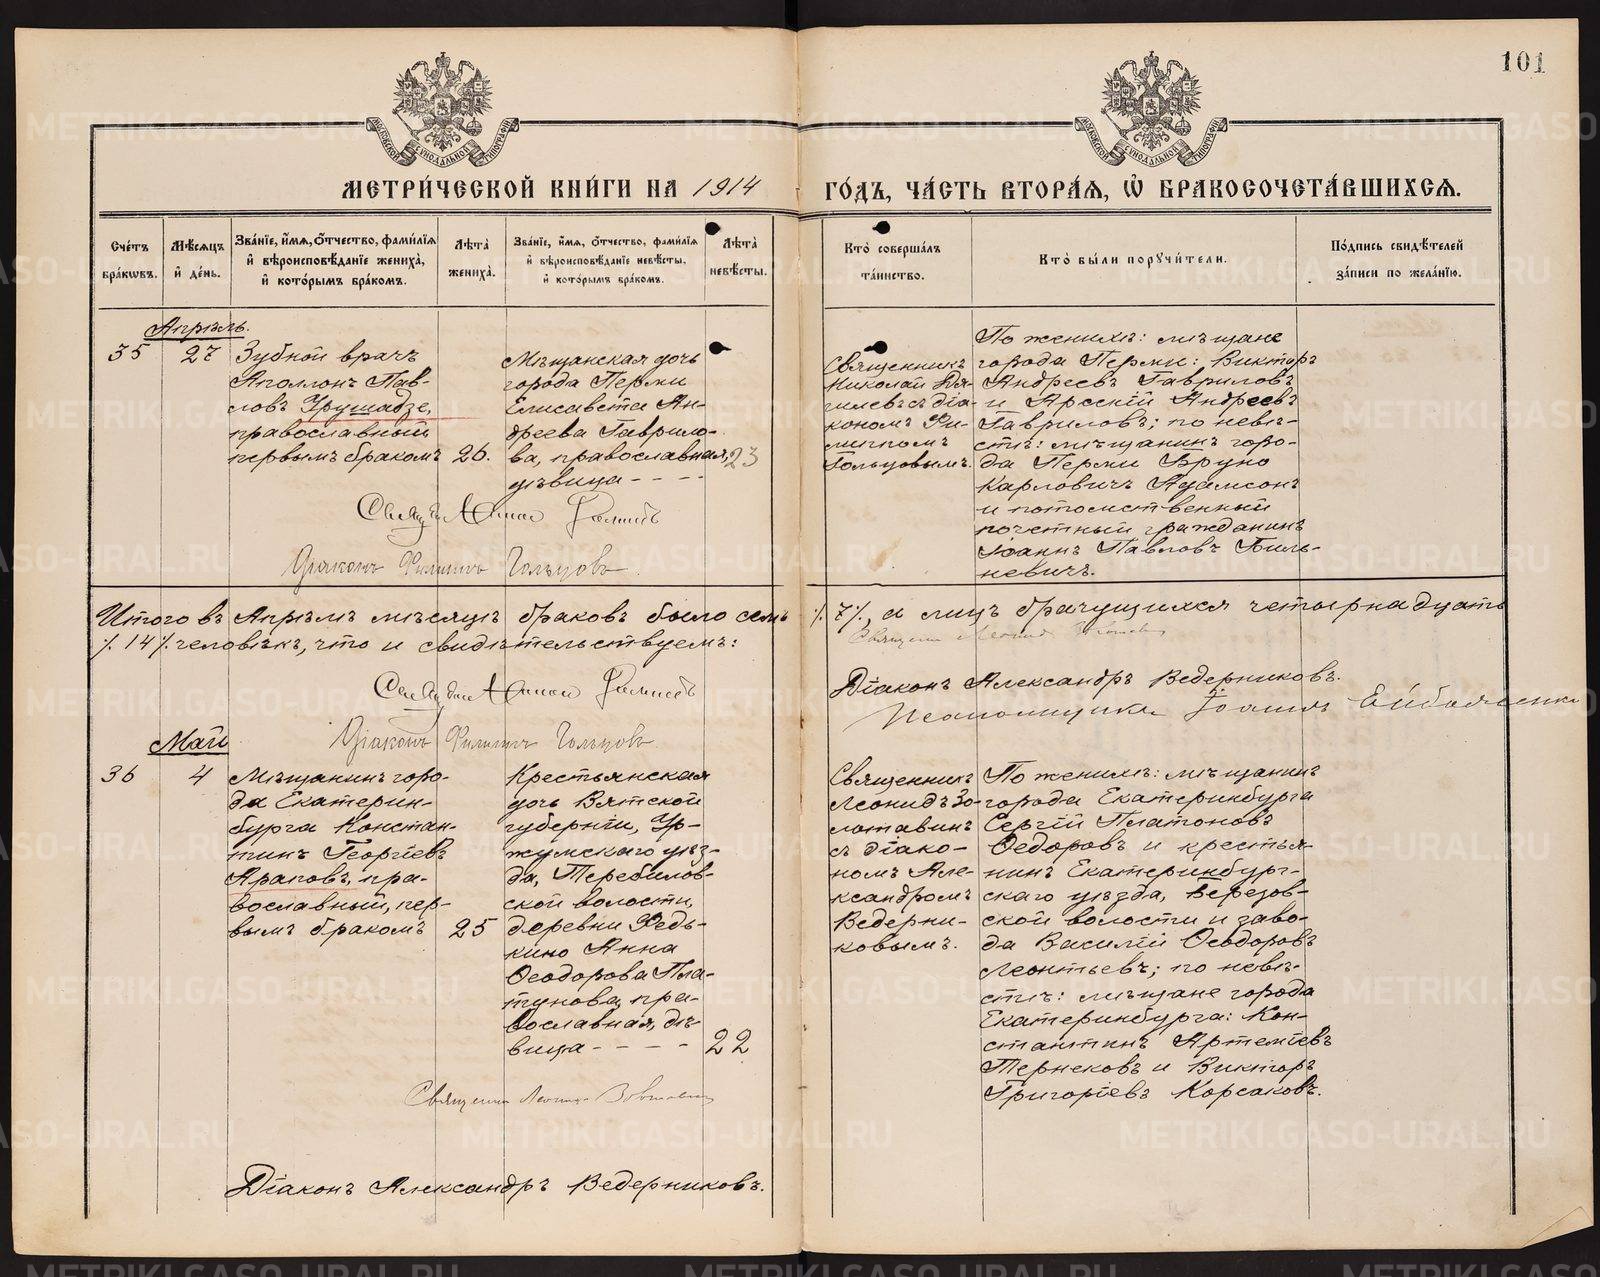 101
МЕТРИЧЕСКОЙ КНИГИ НА 1914 ГОДЪ, ЧАСТЬ ВТОРАЯ, Ѡ БРАКОСОЧЕТАВШИХСЯ.
Счетъ браковъ.
Мѣсяцъ и день.
Званіе, имя, отчество, фамилія и вѣроисповѣданіе жениха, и которымъ бракомъ.
Лѣта жениха.
Званіе, имя, отчество, фамилія и вѣроисповѣданіе невѣсты, и которымъ бракомъ.
Лѣта невѣсты.
Кто совершалъ таинство.
Кто были поручители.
Подпись свидѣтелей записи по желанію.
Апрѣль.
35
27
Зубной врачъ
Аполлонъ Пав-
ловъ Урушадзе,
православный
первымъ бракомъ
26.
Мѣщанская дочь
города Перми
Елисавета Ан-
дреева Гаврило-
ва, православная,
дѣвица - - - -
23
Священникъ
Николай Дя-
гилевъ съ діа-
кономъ Фи-
липпомъ
Гольцовымъ.
По женихѣ: мѣщане
города Перми: Викторъ
Андреевъ Гавриловъ
и Арсній Андреевъ
Гавриловъ; по невѣ-
стѣ: мѣщанинъ горо-
да Перми Бруно
Карловичъ Адамсонъ
и потомственный
почетный гражданинъ
Іоаннъ Павловъ Биль-
невичъ.
Діаконъ Филиппъ Гольцовъ.
Итого въ Апрѣлѣ мѣсяцѣ браковъ было семь ٪ 7 ٪, а лицъ брачущихся четырнадцать
٪ 14 ٪ человѣкъ, что и свидѣтельствуемъ:
Діаконъ Александръ Ведерниковъ.
Діаконъ Филиппъ Гольцовъ
Псаломщикъ Іоаннъ
Май
36
4
Мѣщанинъ горо-
да Екатерин-
бурга Констан-
тинъ Георгіевъ
Араповъ, пра-
вославный, пер-
вымъ бракомъ
25
Крестьянская
дочь Вятской
губерніи, Ур-
жумскаго уѣз-
да, Теребилов-
ской волости,
деревни Редь-
кино Анна
Ѳеодорова Пла-
тунова, пра-
вославная, дѣ-
вица - - - -
22
Священникъ
Леонидъ Зо-
лотавинъ
съ діако-
номъ Але-
ксандромъ
Ведерни-
ковымъ.
По женихѣ: мѣщанинъ
города Екатеринбурга
Сергій Платоновъ
Ѳедоровъ и крестья-
нинъ Екатеринбург-
скаго уѣзда, Березов-
ской волости и заво-
да Василій Ѳеодоровъ
Леонтьевъ; по невѣ-
стѣ: мѣщане города
Екатеринбурга: Кон-
стантинъ Артеміевъ
Тернековъ и Викторъ
Григоріевъ Корсаковъ.
Діаконъ Александръ Ведерниковъ.
METRIKI.GASO-URAL.RU